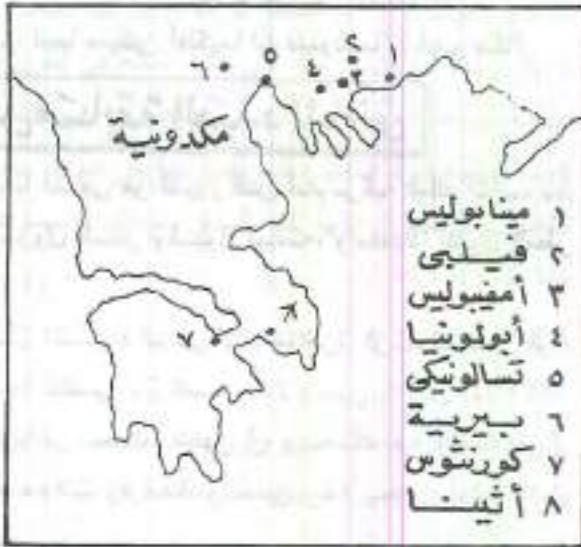 ٦ ٥ ٤ ٣ ٢ ١
مكدونية
٧ ٨
١ مينابوليس
٢ فيلبى
٣ أمفيبوليس
٤ أبولونيا
٥ تسالونيكى
٦ بيرية
٧ كورنثوس
٨ أثينا